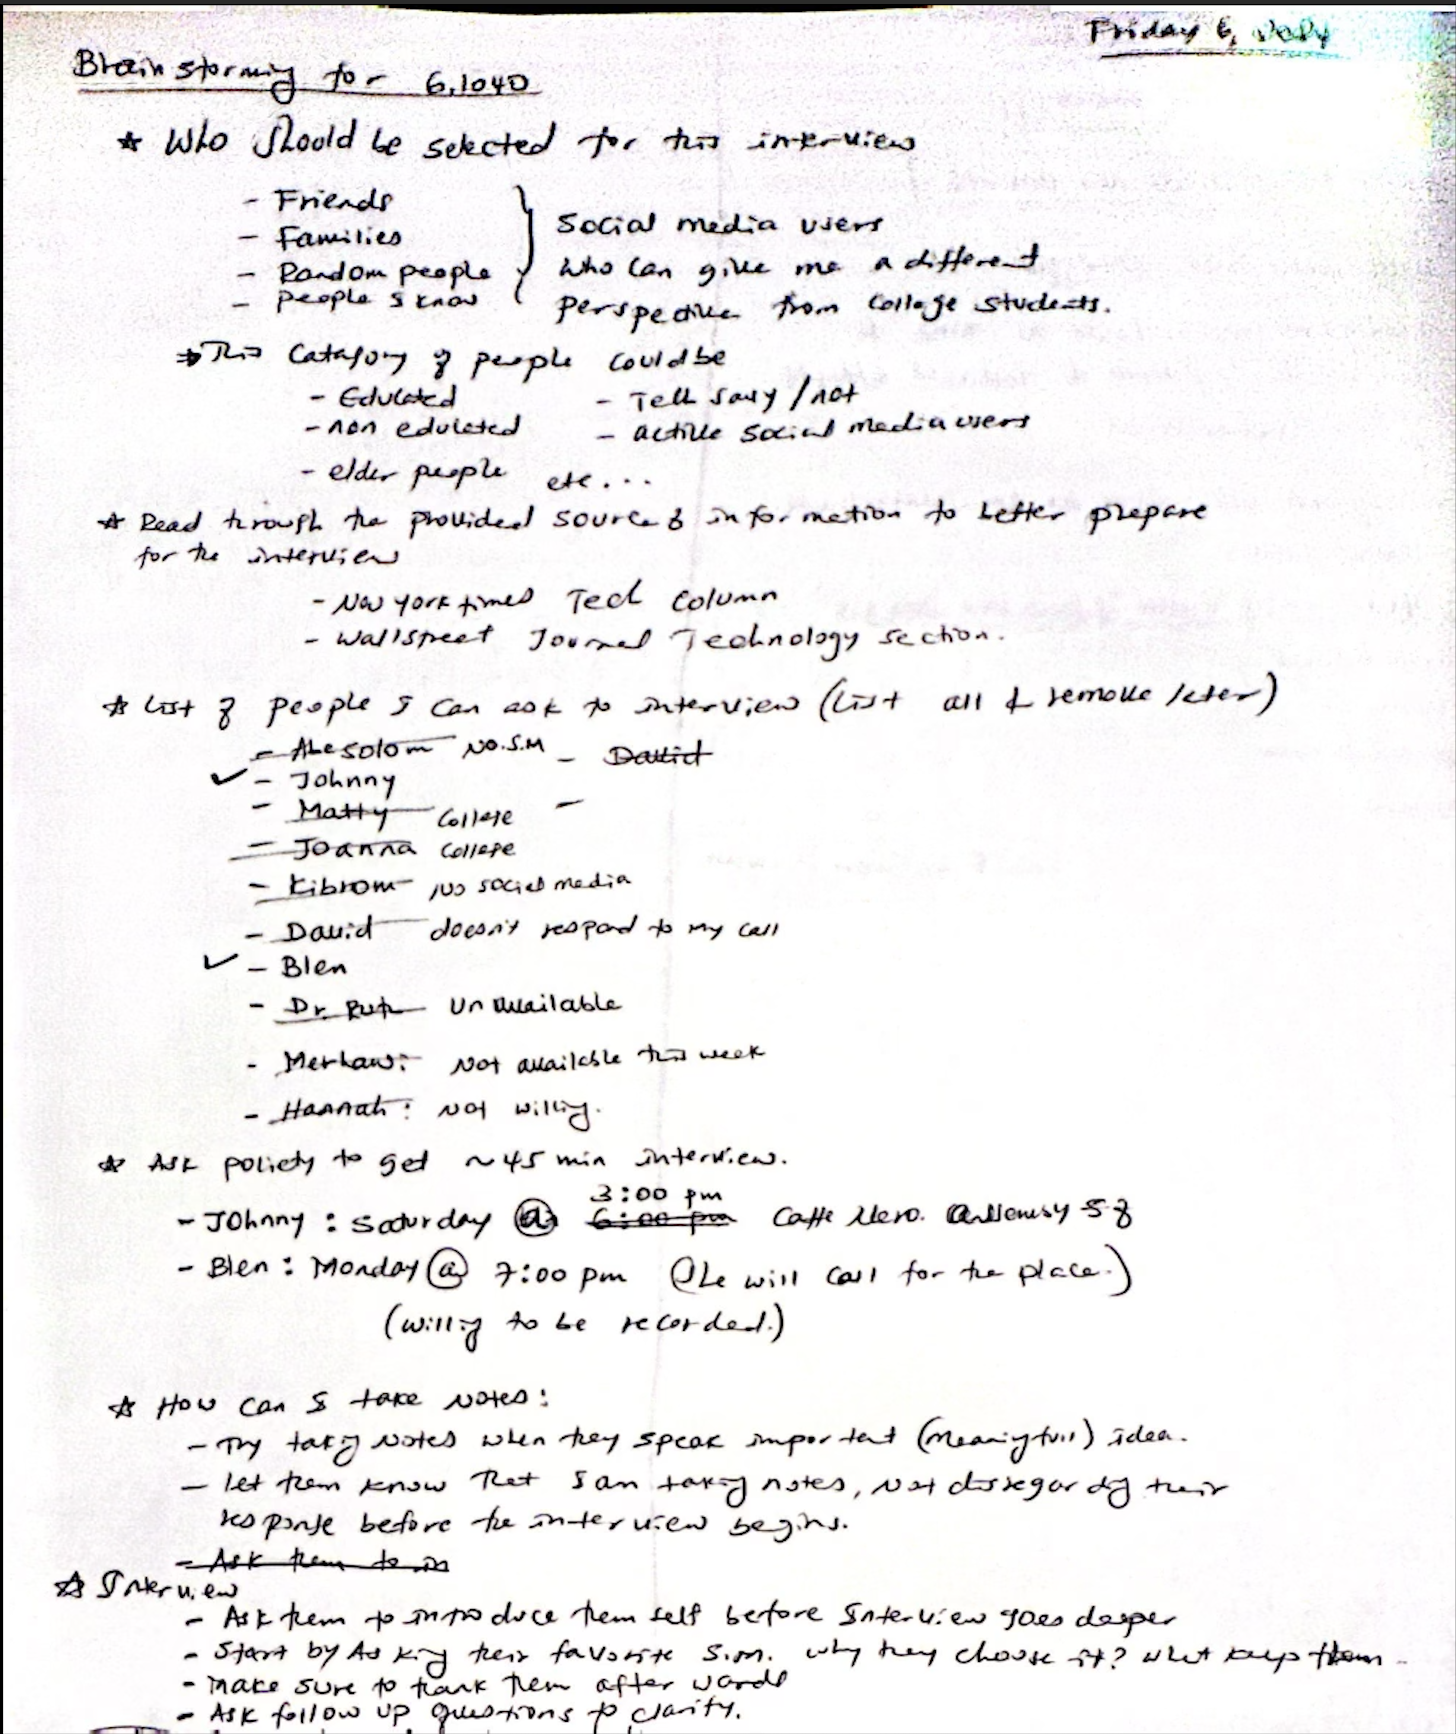 Friday 6,
Brainstorming for 6.1040
* Who should be selected for this interview
- Friends
- Families
- Random people
- people I know
Social media users
who can give me a different
perspective from college students.
⇒ This Catagory of people could be
- Educated
- non educated
- elder people etc...
- Tech savy / not
- active social media users
* Read through the provided source & information to better prepare
for the interview
- New york times Tech column
- Wallstreet Journal Technology section.
* List of people I can ask to interview (List all & remove later)
- Abesolom NO.S.M - David
✓ - Johnny
- Matty college -
- Joanna college
- Kibrom No social media
- David doesn't respond to my call
✓ - Blen
- Dr. Unavailable
- Merhawi: Not available this week
- Hannah: Not willing.
* Ask politely to get ~45 min interview.
3:00 pm
- Johnny : Saturday @ 6:00 pm Caffe Nero.
- Blen : Monday @ 7:00 pm (She will call for the place.)
(willing to be recorded.)
* How can I take notes:
- Try taking notes when they speak important (meaningfull) idea.
- let them know that I am taking notes, not disregarding their
response before the interview begins.
- Ask them to in
* Interview
- Ask them to introduce them self before interview goes deeper
- Start by Asking their favorite S.m. why they choose it? what keep them
- make sure to thank them after wards
- Ask follow up questions to clarity.